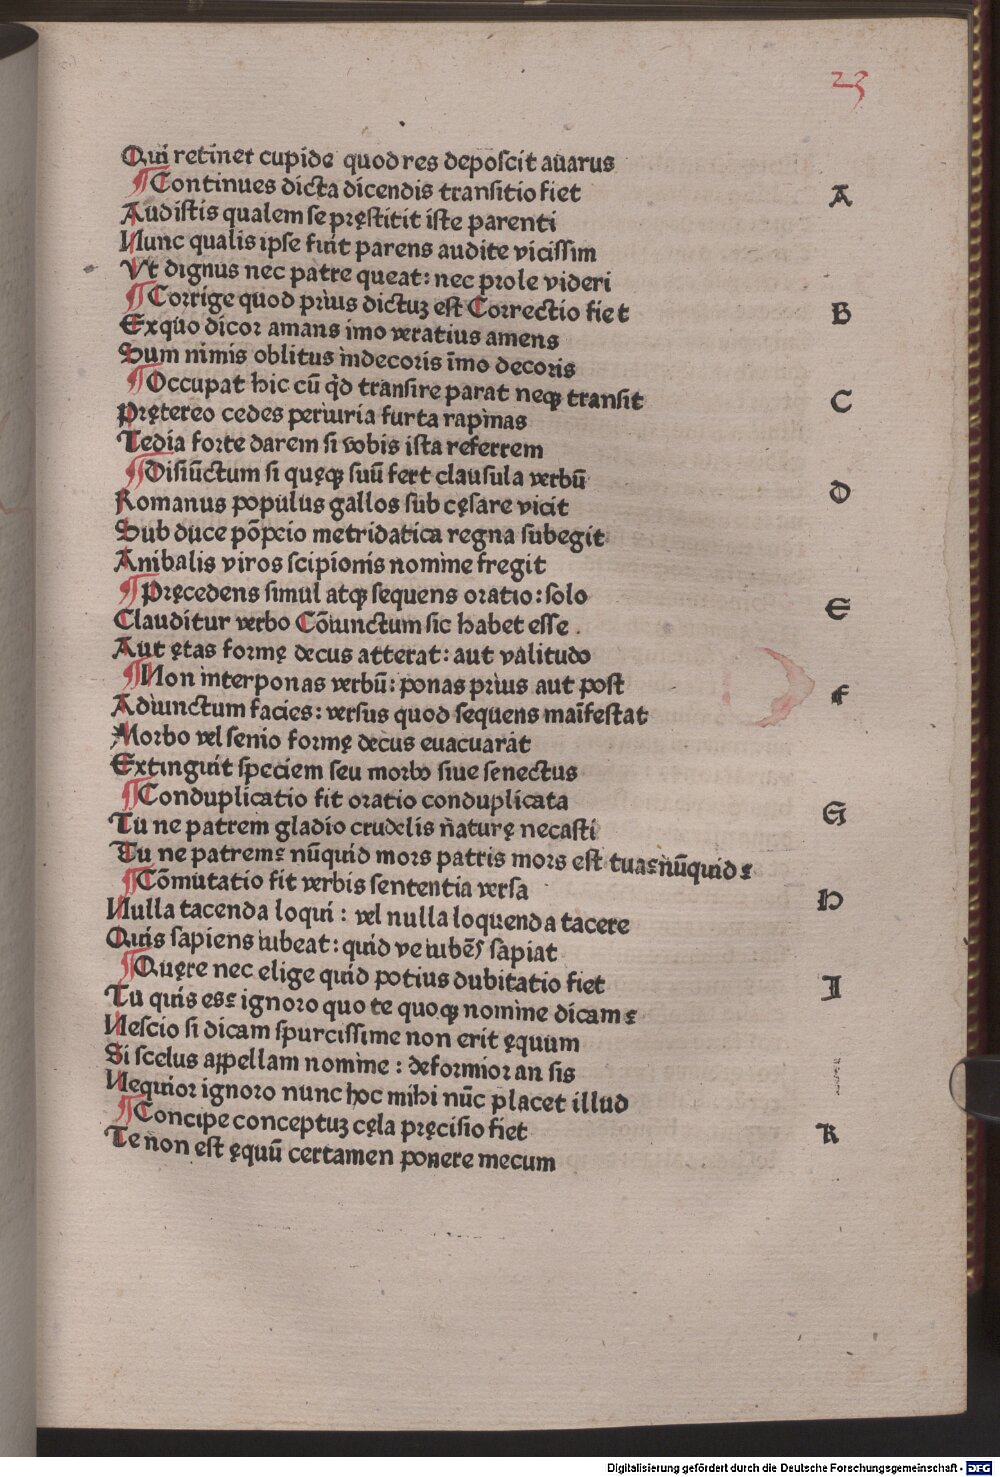 23
Qui retinet cupide quod res deposcit auarus
¶Continues dicta dicendis transitio fiet A
Audistis qualem se pręstitit iste parenti
Nunc qualis ipse fuit parens audite vicissim
Vt dignus nec patre queat: nec prole videri
¶Corrige quod prius dictuꝫ est Correctio fiet B
Ex quo dicor amans imo veratius amens
Sum nimis oblitus indecoris īmo decoris
¶Occupat hic cū qd̓ transire parat neqꝫ transit C
Pręterēo cedes periuria furta rapinas
Tedia forte darem si vobis ista referrem
¶Disiūctum si quęqꝫ suū fert clausula verbū D
Romanus populus gallos sub cęsare vicit
Sub duce pōpeio metridatica regna subegit
Anibalis viros scipionis nomine fregit
¶Pręcedens simul atqꝫ sequens oratio: solo E
Clauditur verbo Cōiunctum sic habet esse.
Aut ętas formę decus atterat: aut valitudo
¶Non interponas verbū: ponas prius aut post F
Adiunctum facies: versus quod sequens maīfestat
Morbo vel senio formę decus euacuarat
Extinguit speciem seu morbo siue senectus
¶Conduplicatio fit oratio conduplicata G
Tu ne patrem gladio crudelis naturę necasti
Tu ne patrem? nūquid mors patris mors est tua? nūquid?
¶Cōmutatio fit verbis sententia versa H
Nulla tacenda loqui: vel nulla loquenda tacere
Quis sapiens iubeat: quid ve iubēs sapiat
¶Quęre nec elige quid potius dubitatio fiet I
Tu quis es? ignoro quo te quoqꝫ nomine dicam?
Nescio si dicam spurcissime non erit ęquum
Si scelus appellam nomine: deformior an sis
Nequior ignoro nunc hoc mihi nūc placet illud
¶Concipe conceptuꝫ cęla pręcisio fiet K
Te non est ęquū certamen ponere mecum
Digitalisierung gefördert durch die Deutsche Forschungsgemeinschaft - DFG